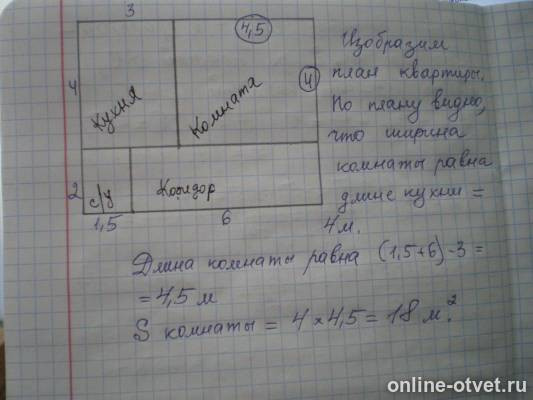 3
4,5
Изобразим
план квартиры.
4
4
По плану видно,
Кухня
Комната
что ширина
комнаты равна
2
с/у
Коридор
длине кухни =
1,5
6
4 м.
Длина комнаты равна (1,5+6)-3 =
= 4,5 м
S комнаты = 4 × 4,5 = 18 м².
online-otvet.ru